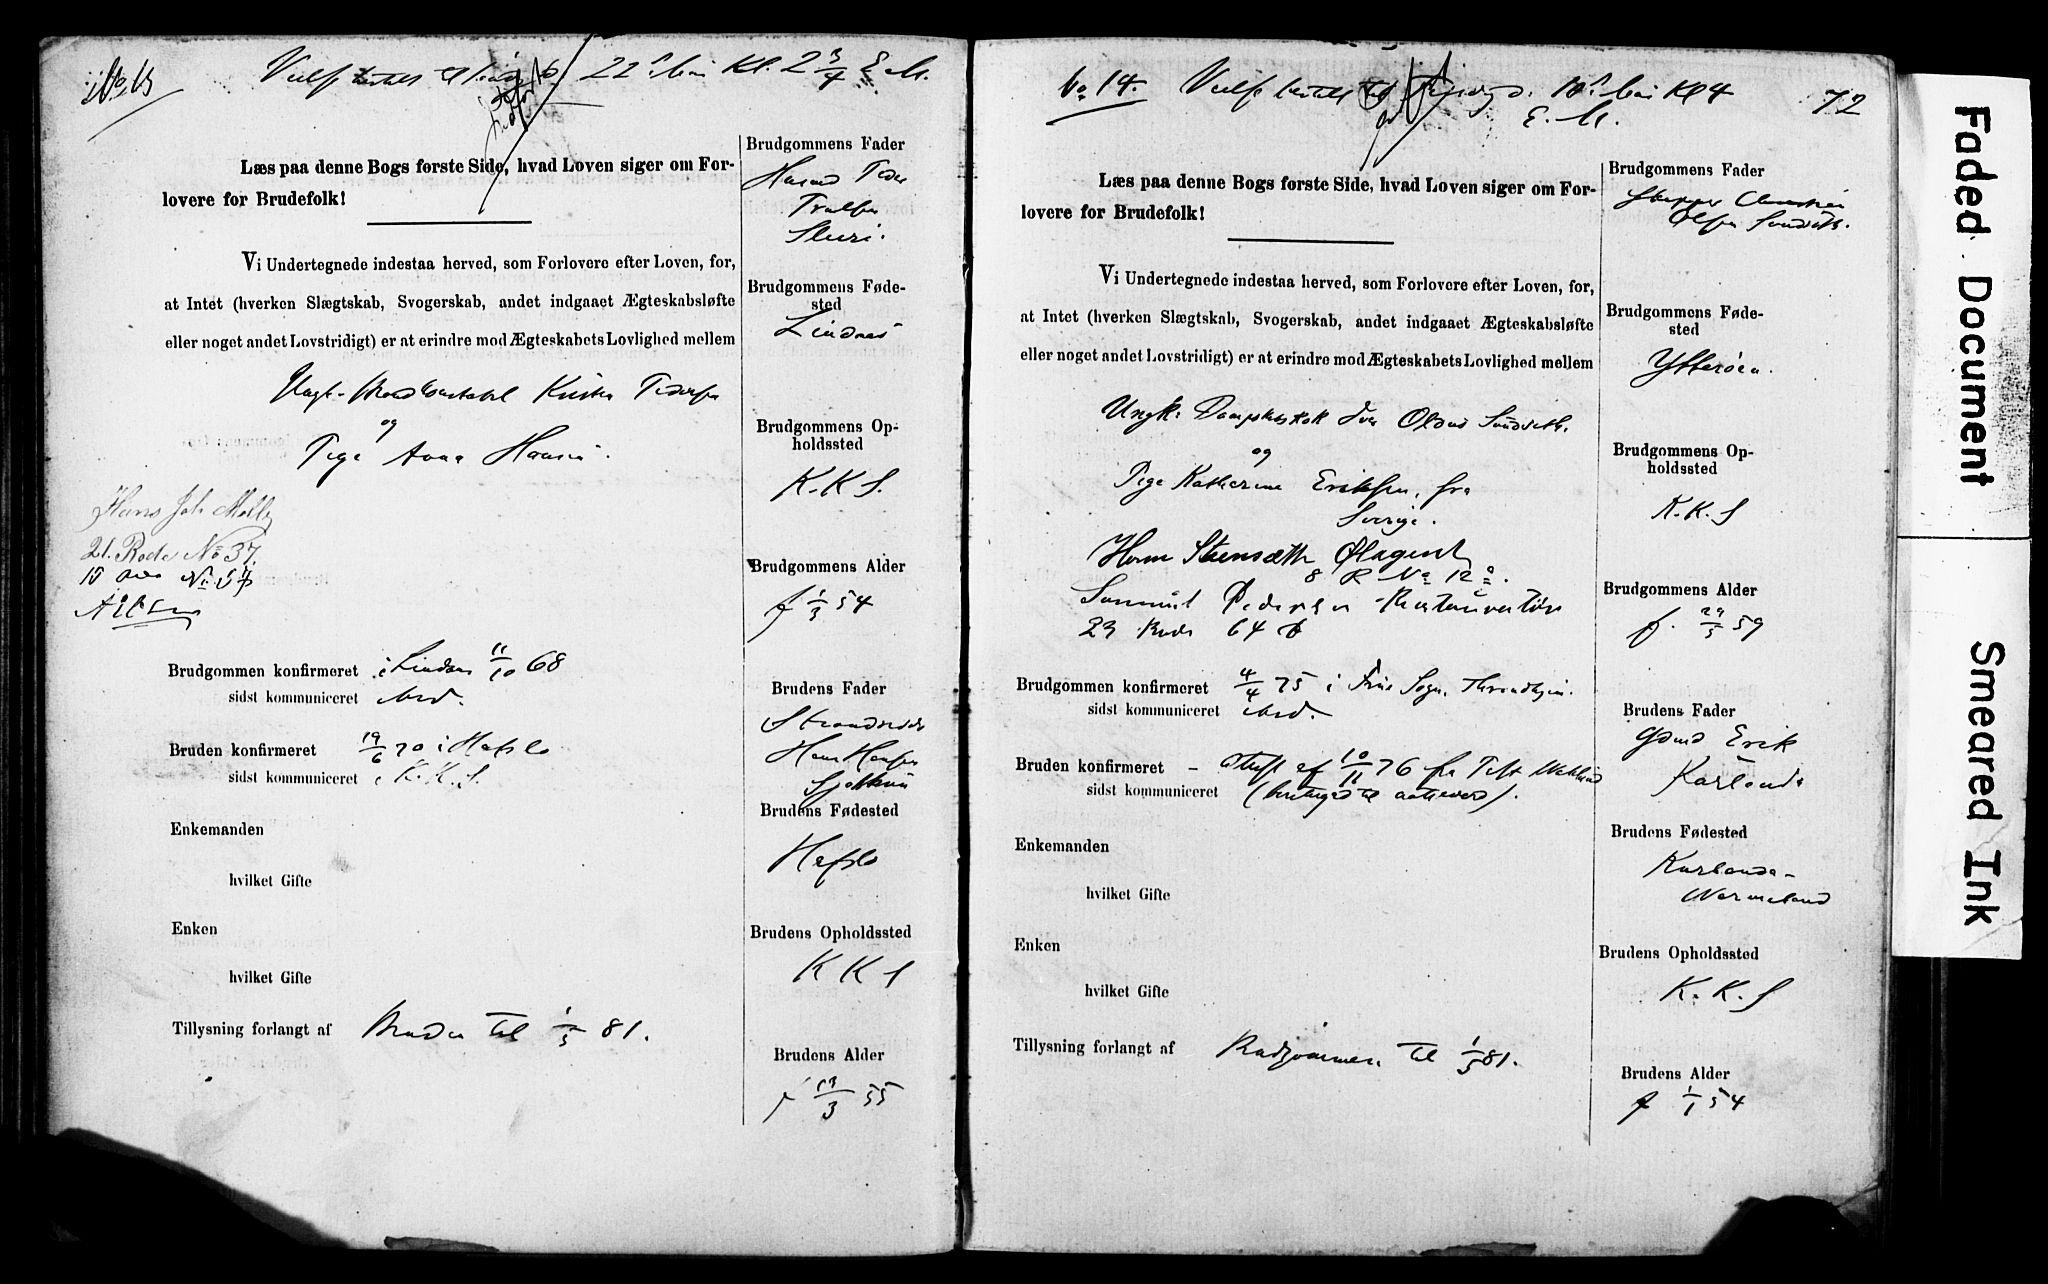 22 Mai Kl. 2 3/4 E. M.
Læs paa denne Bogs første Side, hvad Loven siger om For-
lovere for Brudefolk!
Vi Undertegnede indestaa herved, som Forlovere efter Loven, for,
at Intet (hverken Slægtskab, Svogerskab, andet indgaaet Ægteskabsløfte
eller noget andet Lovstridigt) er at erindre mod Ægteskabets Lovlighed mellem
og
Pige Anna Hansen.
Hans Joh
21. Rode No 37.
Brudgommen konfirmeret i Lindaas 11/10 68
sidst kommuniceret
Bruden konfirmeret 19/6 70 i Hafslo
sidst kommuniceret i K. K. S.
Enkemanden
hvilket Gifte
Enken
hvilket Gifte
Tillysning forlangt af Bruden til 1/5 81.
Brudgommens Fader
Brudgommens Føde-
sted
Lindaas
Brudgommens Op-
holdssted
K. K. S.
Brudgommens Alder
f 1/3 54
Brudens Fader
Strandsidder
Hans Hansen
Brudens Fødested
Hafslo
Brudens Opholdssted
K K S
Brudens Alder
f 19/3 55
No 14. Mai Kl 4
E. M.
72
Læs paa denne Bogs første Side, hvad Loven siger om For-
lovere for Brudefolk!
Vi Undertegnede indestaa herved, som Forlovere efter Loven, for,
at Intet (hverken Slægtskab, Svogerskab, andet indgaaet Ægteskabsløfte
eller noget andet Lovstridigt) er at erindre mod Ægteskabets Lovlighed mellem
Ungk. Dampskibskok Iver Olaus Sundseth.
og
Pige Katherine Eriksen, fra
Sverige.
Stensæth Ølagent
8 R No 12 a.
Samuel Pedersen Restauratør
23 Rode 64 b
Brudgommen konfirmeret 4/4 75 i Frue Sogn, Throndhjem.
sidst kommuniceret
Bruden konfirmeret – Attest af 10/11 76 fra
sidst kommuniceret (berettiget til
Enkemanden
hvilket Gifte
Enken
hvilket Gifte
Tillysning forlangt af Brudgommen til 1/5 81.
Brudgommens Fader
Brudgommens Føde-
sted
Ytterøen.
Brudgommens Op-
holdssted
K. K. S
Brudgommens Alder
f. 29/5 59
Brudens Fader
Gdmd Erik
Karlanda
Brudens Fødested
Karlanda –
Wermeland
Brudens Opholdssted
K. K. S
Brudens Alder
f 1/1 54
Faded Document
Smeared Ink